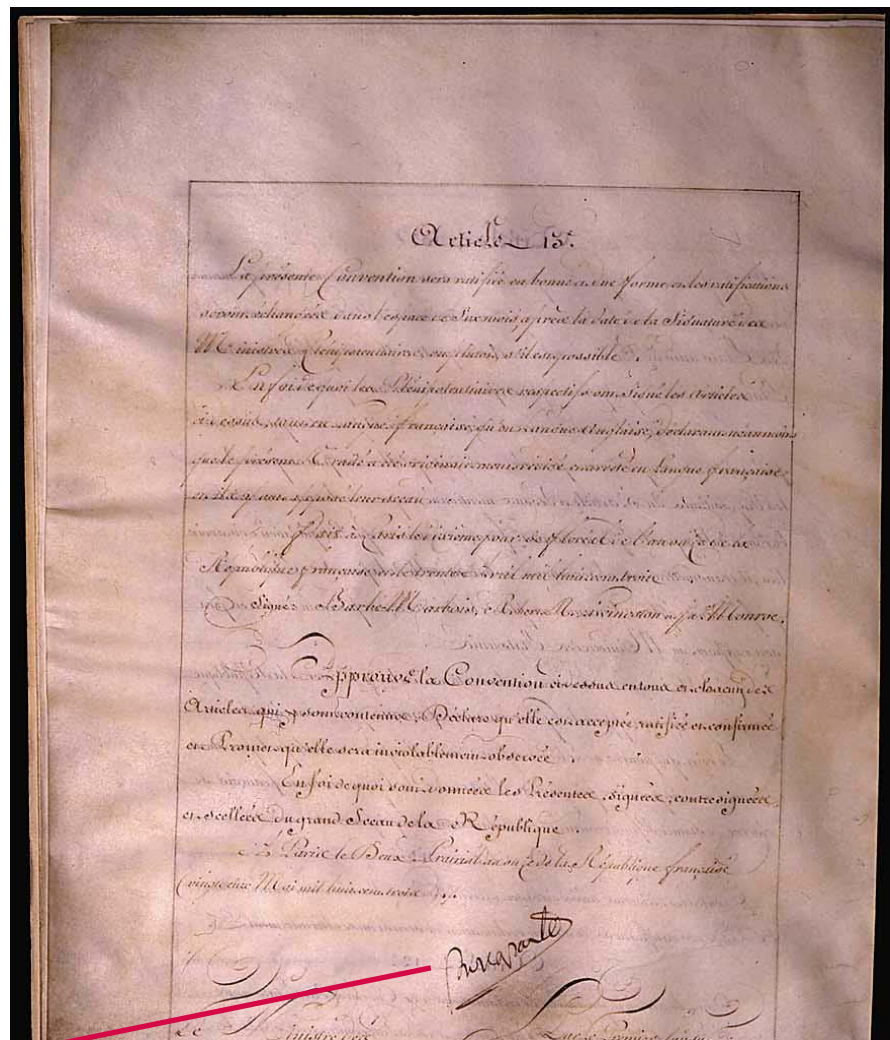 Article 13e.
La présente Convention sera ratifiée en bonne et due forme, et les ratifications
seront échangées dans l'espace de Six mois, après la date de la Signature des
Ministres Plénipotentiaires, ou plutôt, s'il est possible.
En foi de quoi les Plénipotentiaires respectifs ont Signé les Articles
ci dessus, tant en Langue française, qu'en Langue Anglaise, déclarant néanmoins
que le présent Traité a été originairement rédigé et arrêté en Langue française;
et ils y ont apposé leur sceau.
fait à Paris le dixième jour de floréal de l'an onze de la
République française, et le trente Avril mil huit cent trois
Signé: Barbé Marbois, Robert R. Livingston et Ja.s Monroe.
Approuve la Convention ci dessus en tous et chacun des
Articles qui y sont contenus; Déclare qu'elle est acceptée, ratifiée et confirmée
et Promet qu'elle sera inviolablement observée.
En foi de quoi sont données les Présentes, signées, contresignées
et scellées du grand Sceau de la République.
à Paris le Deux Prairial an onze de la République française
(vingt deux Mai mil huit cent trois).
Bonaparte
Le Ministre des